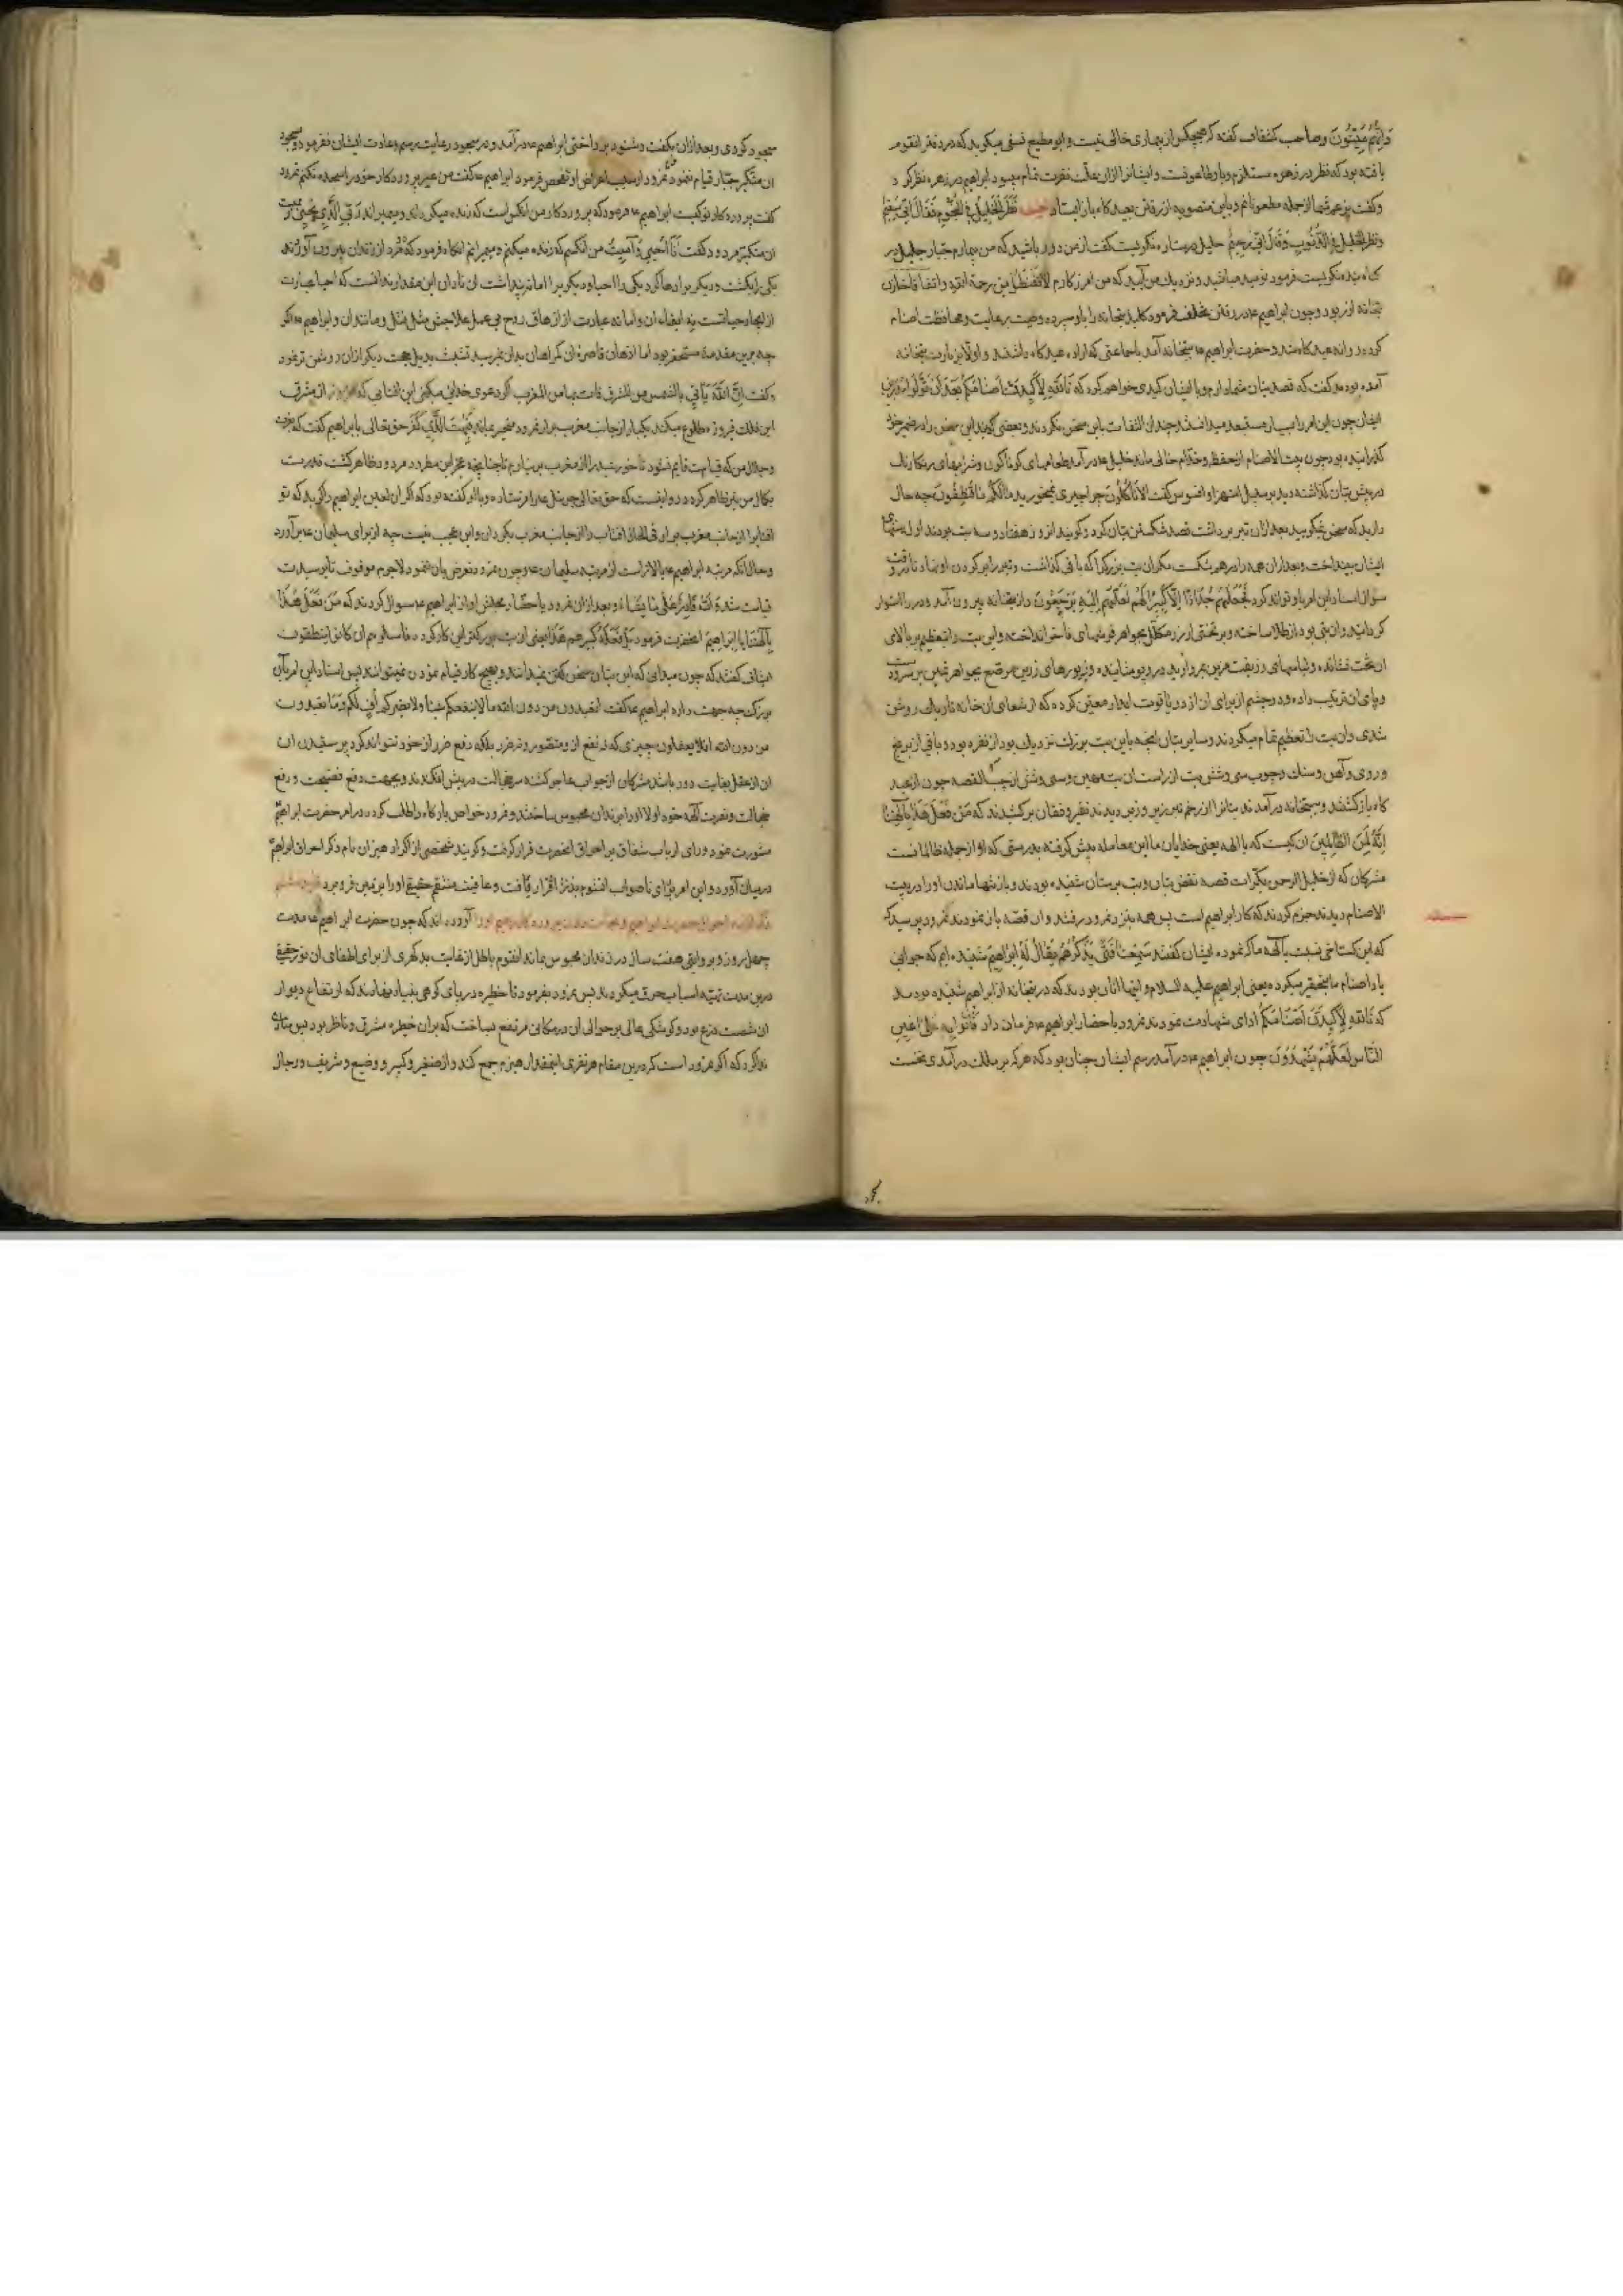 وَاِنَّهُم مَيِّتُونَ وصاحب کشاف کفته که هیچکس از بیماری خالی نیست وابو مطیع نسفی میکوید که در دفتر انقوم
یافته بود که نظر در زهره مستلزم وبا وطاعونست و ایشانرا ازان علت نفرت تمام میبود ابراهیم در زهره نظر کرد و
وکفت بزعم شما از جمله مطعونانم وباین منصوبه از رفتن بعیدکاه باز ایستاد نَظَرَ الخَلِیلُ فِی النُّجُومِ فَقَالَ اِنِّی سَقِیمٌ
ونظر الجلیل فی الذنوب وَقَالَ اِنِّی رَحِیمٌ خلیل در ستاره نکریست کفت از من دور باشید که من بیمارم جبار جلیل در
کناه بنده نکریست فرمود نومید مباشید ونزدیک من آیید که من امرزکارم لَا تَقْنَطُوا مِن رحمة الله واتفاقا خازن
بتخانه ازر بود وچون ابراهیم ع در رفتن تخلف فرمود کلید بتخانه را باو سپرده وصیت برعایت ومحافظت اصنام
کرده روانه عیدکاه شد وحضرت ابراهیم ع ببتخانه آمد با جماعتی که اراده عیدکاه داشتند واولا بزیارت بتخانه
آمده بودند کفت که قصد بتان شما دارم وبا ایشان کیدی خواهم کرد که تَاللّٰهِ لَاَکِیدَنَّ اَصْنَامَکُم بَعْدَ اَن تُوَلُّوا مُدْبِرِینَ
ایشان چون این امر را بسیار مستبعد میدانستند چندان التفات باین سخن نکردند وبعضی کویند این سخن را در ضمیر خود
کذرانیده بود چون بیت الاصنام از حفظ وخدام خالی ماند خلیل ع در آمد طعامهای کوناکون وشرابهای رنکارنک
در پیش بتان کذاشته دید بر سبیل استهزا وافسوس کفت اَلَا تَاْکُلُونَ چرا چیزی نمیخورید مَالَکُم لَا تَنطِقُونَ چه حال
دارید که سخن نمیکویید بعد ازان تبر برداشت قصد شکستن بتان کرد وکویند انروز هفتاد و سه بت بودند اول
ایشان بینداخت وبعد ازان همه را درهم شکست مکر ان بت بزرک را که باقی کذاشت وتبر را بر کردن او نهاد تا در وقت
سوال اسناد این امر باو تواند کرد فَجَعَلَهُم جُذَاذًا اِلَّا کَبِیرًا لَّهُم لَعَلَّهُم اِلَیْهِ یَرْجِعُونَ واز بتخانه بیرون آمد ودر را استوار
کردانید وان بتی بود از طلا ساخته وبر تختی از زر مکلل بجواهر فرشهای فاخر انداخته واین بت را بتعظیم بر بالای
ان تخت نشانده ولباسهای زربفت مزین بمروارید در و پوشانیده وزیورهای زرین مرصع بجواهر ثمین بر سر ودست
وپای ان ترکیب داده ودو چشم از برای ان از دو یاقوت ابدار معین کرده که از شعاع ان خانه تاریک روشن
شدی وان بت را تعظیم تمام میکردند وسایر بتان انچه باین بت بزرک نزدیک بود از نقره بود وباقی از برنج
وروی وآهن وسنک وچوب سی وشش بت از راست ان بت مهین وسی وشش از چپ القصه چون از عید
کاه بازکشتند وببتخانه در آمدند بتانرا از زخم تبر زیر وزبر دیدند نفیر وفغان برکشیدند که مَن فَعَلَ هٰذَا بِاٰلِهَتِنَا
اِنَّهُ لَمِنَ الظَّالِمِینَ ان کیست که با الهه یعنی خدایان ما این معامله پیش کرفته بدرستی که او از جمله ظالمانست
مشرکان که از خلیل الرحمن بکرات قصه نقض بتان وبت پرستان شنیده بودند وباز تنها ماندن او را در بیت
الاصنام دیدند جزم کردند که کار ابراهیم است پس همه نزد نمرود رفتند وان قصه باز نمودند نمرود پرسید که
که این کستاخی نسبت بآلهه ما که نموده ایشان کفتند سَمِعْنَا فَتًی یَذْکُرُهُم یُقَالُ لَهُ اِبْرَاهِیمُ شنیده ایم که جوانی
یاد اصنام ما بتحقیر میکرده یعنی ابراهیم علیه السلام واینها انان بودند که در بتخانه از ابراهیم شنیده بودند
که تَاللّٰهِ لَاَکِیدَنَّ اَصْنَامَکُم ادای شهادت نمودند نمرود باحضار ابراهیم ع فرمان داد فَاْتُوا بِهِ عَلَی اَعْیُنِ
النَّاسِ لَعَلَّهُم یَشْهَدُونَ چون ابراهیم ع در آمد رسم ایشان چنان بود که هرکه بر ملک در آمدی نخست
سجود کردی وبعد ازان بکفت وشنود پرداختی ابراهیم ع در آمد ودر سجود رعایت رسم وعادت ایشان نفرمود وسجود
ان متکبر جبار قیام ننمود نمرود از سبب اعراض او تفحص فرمود ابراهیم ع کفت من غیر پروردکار خود را سجده نکنم نمرود
کفت پروردکار تو کیست ابراهیم ع فرمود که پروردکار من انکس است که زنده میکرداند ومیمیراند رَبِّیَ الَّذِی یُحْیِی وَیُمِیتُ
ان متکبر مردود کفت اَنَا اُحْیِی وَاُمِیتُ من انکسم که زنده میکنم ومیمیرانم انکاه فرمود که دو مرد از زندان بیرون آوردند
یکی را بکشت ودیکری را رها کرد یکی را احیا ودیکری را اماته پنداشت ان نادان این مقدار ندانست که احیا عبارت
از ایجاد حیاتست نه ابقاء ان واماته عبارت از ازهاق روح بی عمل علاجش مثل قتل ومانند ان وابراهیم ع اکر
چه برین مقدمه مستحضر بود اما اذهان قاصره ان کمراهان بدان نمیرسید تشبث بذیل حجت دیکر ازان روشن تر نمود
وکفت اِنَّ اللّٰهَ یَاْتِی بالشمس من المشرق فات بها من المغرب اکر دعوی خدایی میکنی این افتابی که هر روز از مشرق
این فلک فیروزه طلوع میکند یکبار از جانب مغرب برار نمرود متحیر بماند فَبُهِتَ الَّذِی کَفَرَ حق تعالی بابراهیم کفت که بعزت
وجلال من که قیامت قایم نشود تا خورشید را از مغرب بر نیارم تا چنانچه عجز این مطرود مردود ظاهر کشت قدرت
بکمال من نیز ظاهر کردد وروایتست که حق تعالی جبرئیل ع را فرستاده وباو کفته بود که اکر ان لعین ابراهیم را کوید که تو
افتاب را از جانب مغرب برار فی الحال افتاب را از جانب مغرب بکردان واین عجب نیست چه از برای سلیمان ع برآورد
وحال انکه مرتبه ابراهیم ع بالاتر است از مرتبه سلیمان ع وچون نمرود تعرض بان ننمود لاجرم موقوف تا بر سیدت
قیامت شد وَاللّٰهُ قَادِرٌ عَلٰی مَا یَشَاءُ وبعد ازان نمرود باحضار مجلس او از ابراهیم ع سوال کردند که مَن فَعَلَ هٰذَا
بِاٰلِهَتِنَا یَا اِبْرَاهِیمُ انحضرت فرمود بَلْ فَعَلَهُ کَبِیرُهُم هٰذَا یعنی ان بت بزرکتر این کار کرده فاسئلوهم ان کانوا ینطقون
ایشان کفتند که چون میدانی که این بتان سخن کفتن نمیدانند وبهیچ کار قیام نمودن نمیتوانند پس اسناد این امر بآن
بزرک چه جهت دارد ابراهیم ع کفت افتعبدون من دون الله ما لا ینفعکم شیئا ولا یضرکم اُفٍّ لَکُم وَلِمَا تَعْبُدُونَ
من دون الله افلا یعقلون چیزی که نه نفع ازو متصور ونه ضرر بلکه دفع ضرر از خود نتواند کرد پرستیدن ان
ان از عقل بغایت دور باشد مشرکان از جواب عاجز کشته سر خجالت در پیش افکندند وبجهت دفع فضیحت ورفع
خجالت ونصرت آلهه خود اولا او را بزندان محبوس ساختند ونمرود خواص بارکاه را طلب کرده در امر حضرت ابراهیم
مشورت نمود ورای ارباب شقاق بر احراق انحضرت قرار کرفت وکویند شخصی از اکراد هیزان نام ذکر احراق ابراهیم
در میان آورد واین امر برای ناصواب انقوم بدین اقرار یافت وعاقبت منتقم حقیقی او را بزمین فرو برد
ذکر احراق حضرت ابراهیم ونجات یافتن پروردکار رحیم او را آورده اند که چون حضرت ابراهیم ع مدت
چهل روز وبروایتی هفت سال در زندان محبوس بماند انقوم باطل از غایت بدکهری از برای اطفای ان نور حقیقی
درین مدت تهیه اسباب حرق میکردند پس نمرود بفرمود تا حظیره در پای کوهی بنیاد نهادند که ارتفاع دیوار
ان شصت ذرع بود وکوشکی عالی بر حوالی ان در مکانی مرتفع بساخت که بران حظیره مشرف وناظر بود پس منادی
ندا کرد که اکر نمرود است که درین مقام هر نفری اینمقدار هیزم جمع کند واز صغیر وکبیر ووضیع وشریف ورجال